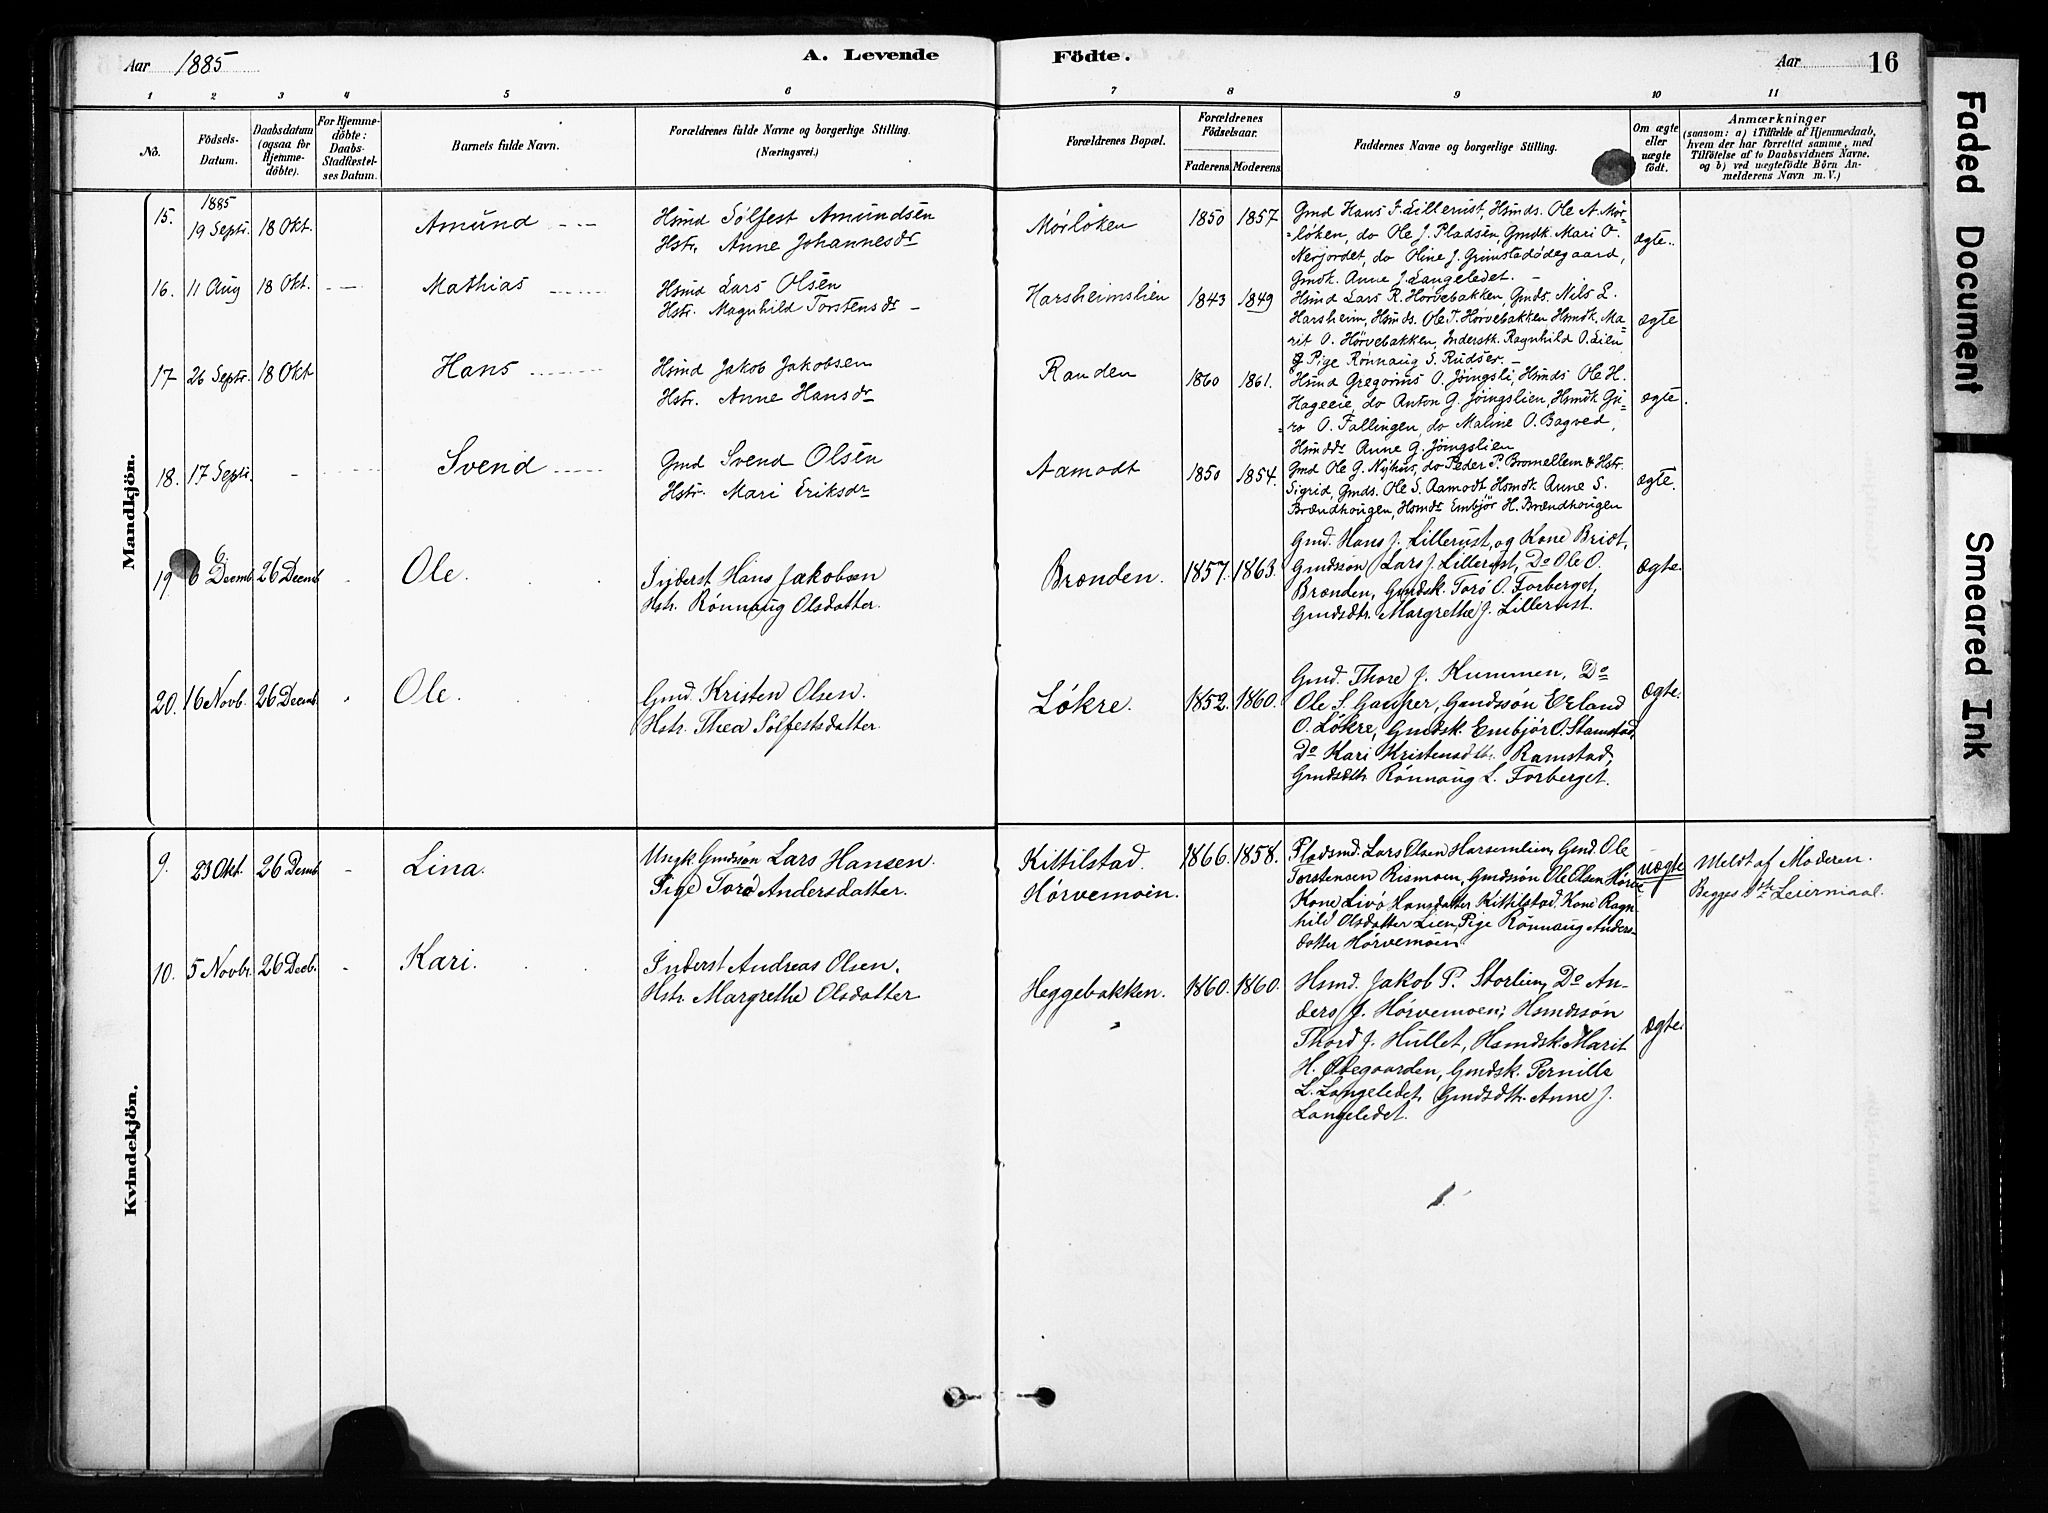 Aar 1885
A. Levende
Födte.
Aar
16
1 2 3 4 5 6 7 8 9 10 11
No.
Födsels-
Datum.
Daabsdatum
(ogsaa for
Hjemme-
döbte).
For Hjemme-
döbte:
Daabs-
Stadfæstel-
ses Datum.
Barnets fulde Navn.
Forældrenes fulde Navne og borgerlige Stilling.
(Næringsvei.)
Forældrenes Bopæl.
Forældrenes
Födselsaar.
Faderens. Moderens.
Faddernes Navne og borgerlige Stilling.
Om ægte
eller
uægte
födt.
Anmærkninger
(saasom: a) i Tilfælde af Hjemmedaab,
hvem der har forrettet samme, med
Tilföielse af to Daabsvidners Navne,
og b) ved uægtefödte Börn An-
melderens Navn m. V.)
Mandkjön.
1885
15. 19 Septr. 18 Okt. Amund
Hsmd Sølfest Amundsen
Hstr. Anne Johannesdr
Mørløken 1850 1857
Gmd Hans J. Lillerust, Hsmds. Ole A. Mør-
løken, do Ole J. Pladsen, Gmdk. Mari O.
Nerjordet, do Oline J. Grimstadødegaard,
Gmsk. Anne J. Langeledet.
ægte.
16. 11 Aug 18 Okt. Mathias
Hsmd Lars Olsen
Hstr. Magnhild Torstensdr
Harsheimslien 1843 1849
Hsmd Lars R. Hørvebakken, Gmds. Nils L.
Harsheim, Hsmds. Ole T. Hørvebakken Hsmdk. Ma-
rit O. Hørvebakken, Inderstk. Ragnhild O. Lien
& Pige Rønnaug S. Rudser.
ægte
17. 26 Septr. 18 Okt Hans
Hsmd Jakob Jakobsen
Hstr. Anne Hansdr
Randen 1860 1861.
Hsmd Gregorius O. Jøingsli, Hsmds Ole H.
Hageeie, do Anton G. Jøingslien, Hsmdk Gu-
ro O. Fallingen, do Maline O. Bagved,
Hsmddr Anne G. Jøingslien
ægte.
18. 17 Septr. Svend
Gmd Svend Olsen
Hstr. Mari Eriksdr
Aamodt 1850 1854.
Gmd Ole G. Nyhus, do Peder P. Bromellem & Hstr.
Sigrid, Gmds. Ole S. Aamodt Hsmdk Anne S.
Brændhougen, Hsmdr Embjör H. Brændhougen
ægte.
19. 6 Decemb. 26 Decemb. Ole.
Inderst Hans Jakobsen
Hstr. Rönnaug Olsdatter.
Brænden. 1857. 1863.
Gmd. Hans J. Lillerust, og Kone Briet,
Gmdssøn Lars J. Lillerust, Do Ole O.
Brænden, Gmdsk. Torø O. Forberget,
Gmdsdtr. Margrethe J. Lillerust.
ægte.
20. 16 Novb. 26 Decemb. Ole.
Gmd. Kristen Olsen.
Hstr. Thea Sölfestsdatter.
Løkre. 1852. 1860.
Gmd. Thore J. Kummen, Do
Ole S. Gauper, Gmdssøn Erland
O. Løkre, Gmdsk. Embjør O. Stamstad,
Do Kari Kristensdtr. Ramstad,
Gmdsdtr. Rønnaug L. Forberget.
ægte.
Kvindekjön.
9. 23 Okt. 26 Demb. Lina.
Ungk. Gmdssøn Lars Hansen.
Pige Torø Andersdatter.
Kittilstad.
Hørvemoin.
1866. 1858.
Pladsmd. Lars Olsen Harsemlien, Gmd. Ole
Torstensen Rismoen, Gmdssøn Ole Olsen Hörve
Kone Livø Hansdatter Kittilstad. Kone Ragn-
hild Olsdatter Lien, Pige Rønnaug Anders-
datter Hørvemoin
uægte
Meldt af Moderen.
Begges 1ste Leiermaal.
10. 5 Novbr. 26 Decb. Kari.
Inderst Andreas Olsen.
Hstr. Margrethe Olsdatter
Heggebakken. 1860. 1860.
Hsmd. Jakob P. Storlien, Do An-
ders J. Hørvemoen, Hsmdssøn
Thord J. Hullet, Hsmdsk. Marit
H. Ødegaarden, Gmdsk. Pernille
L. Langeledet, Gmdsdtr. Anne J.
Langeledet.
ægte.
Faded Document
Smeared Ink